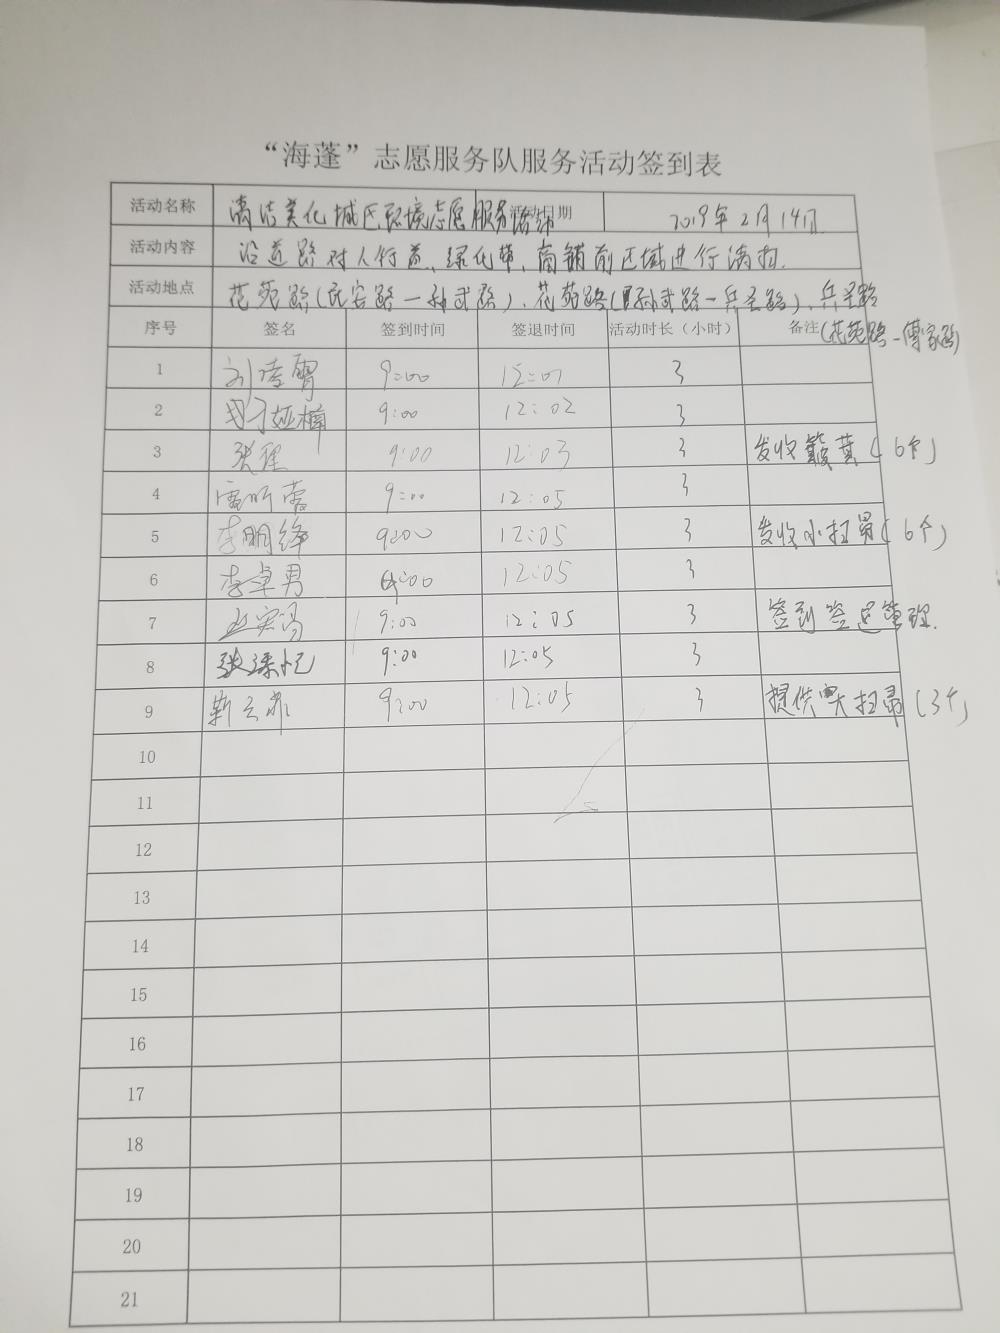 “海蓬”志愿服务队服务活动签到表
活动名称 清洁美化城区环境志愿服务活动 活动日期 2019年2月14日
活动内容 沿道路对人行道、绿化带、商铺前区域进行清扫.
活动地点 花苑路(民安路一孙武路)、花苑路(孙武路一兵圣路)、兵圣路
(花苑路一傅家路)
序号 签名 签到时间 签退时间 活动时长（小时） 备注
1 刘凌霄 9:00 12:01 3
2 9:00 12:02 3
3 张程 9:00 12:03 3 发收簸箕(6个)
4 雷昕蓉 9:00 12:05 3
5 李明绛 9:00 12:05 3 发收小扫帚(6个)
6 李卓男 9:00 12:05 3
7 9:00 12:05 3 签到签退管理.
8 9:00 12:05 3
9 靳云非 9:00 12:05 3 提供大扫帚(3个)
10
11
12
13
14
15
16
17
18
19
20
21